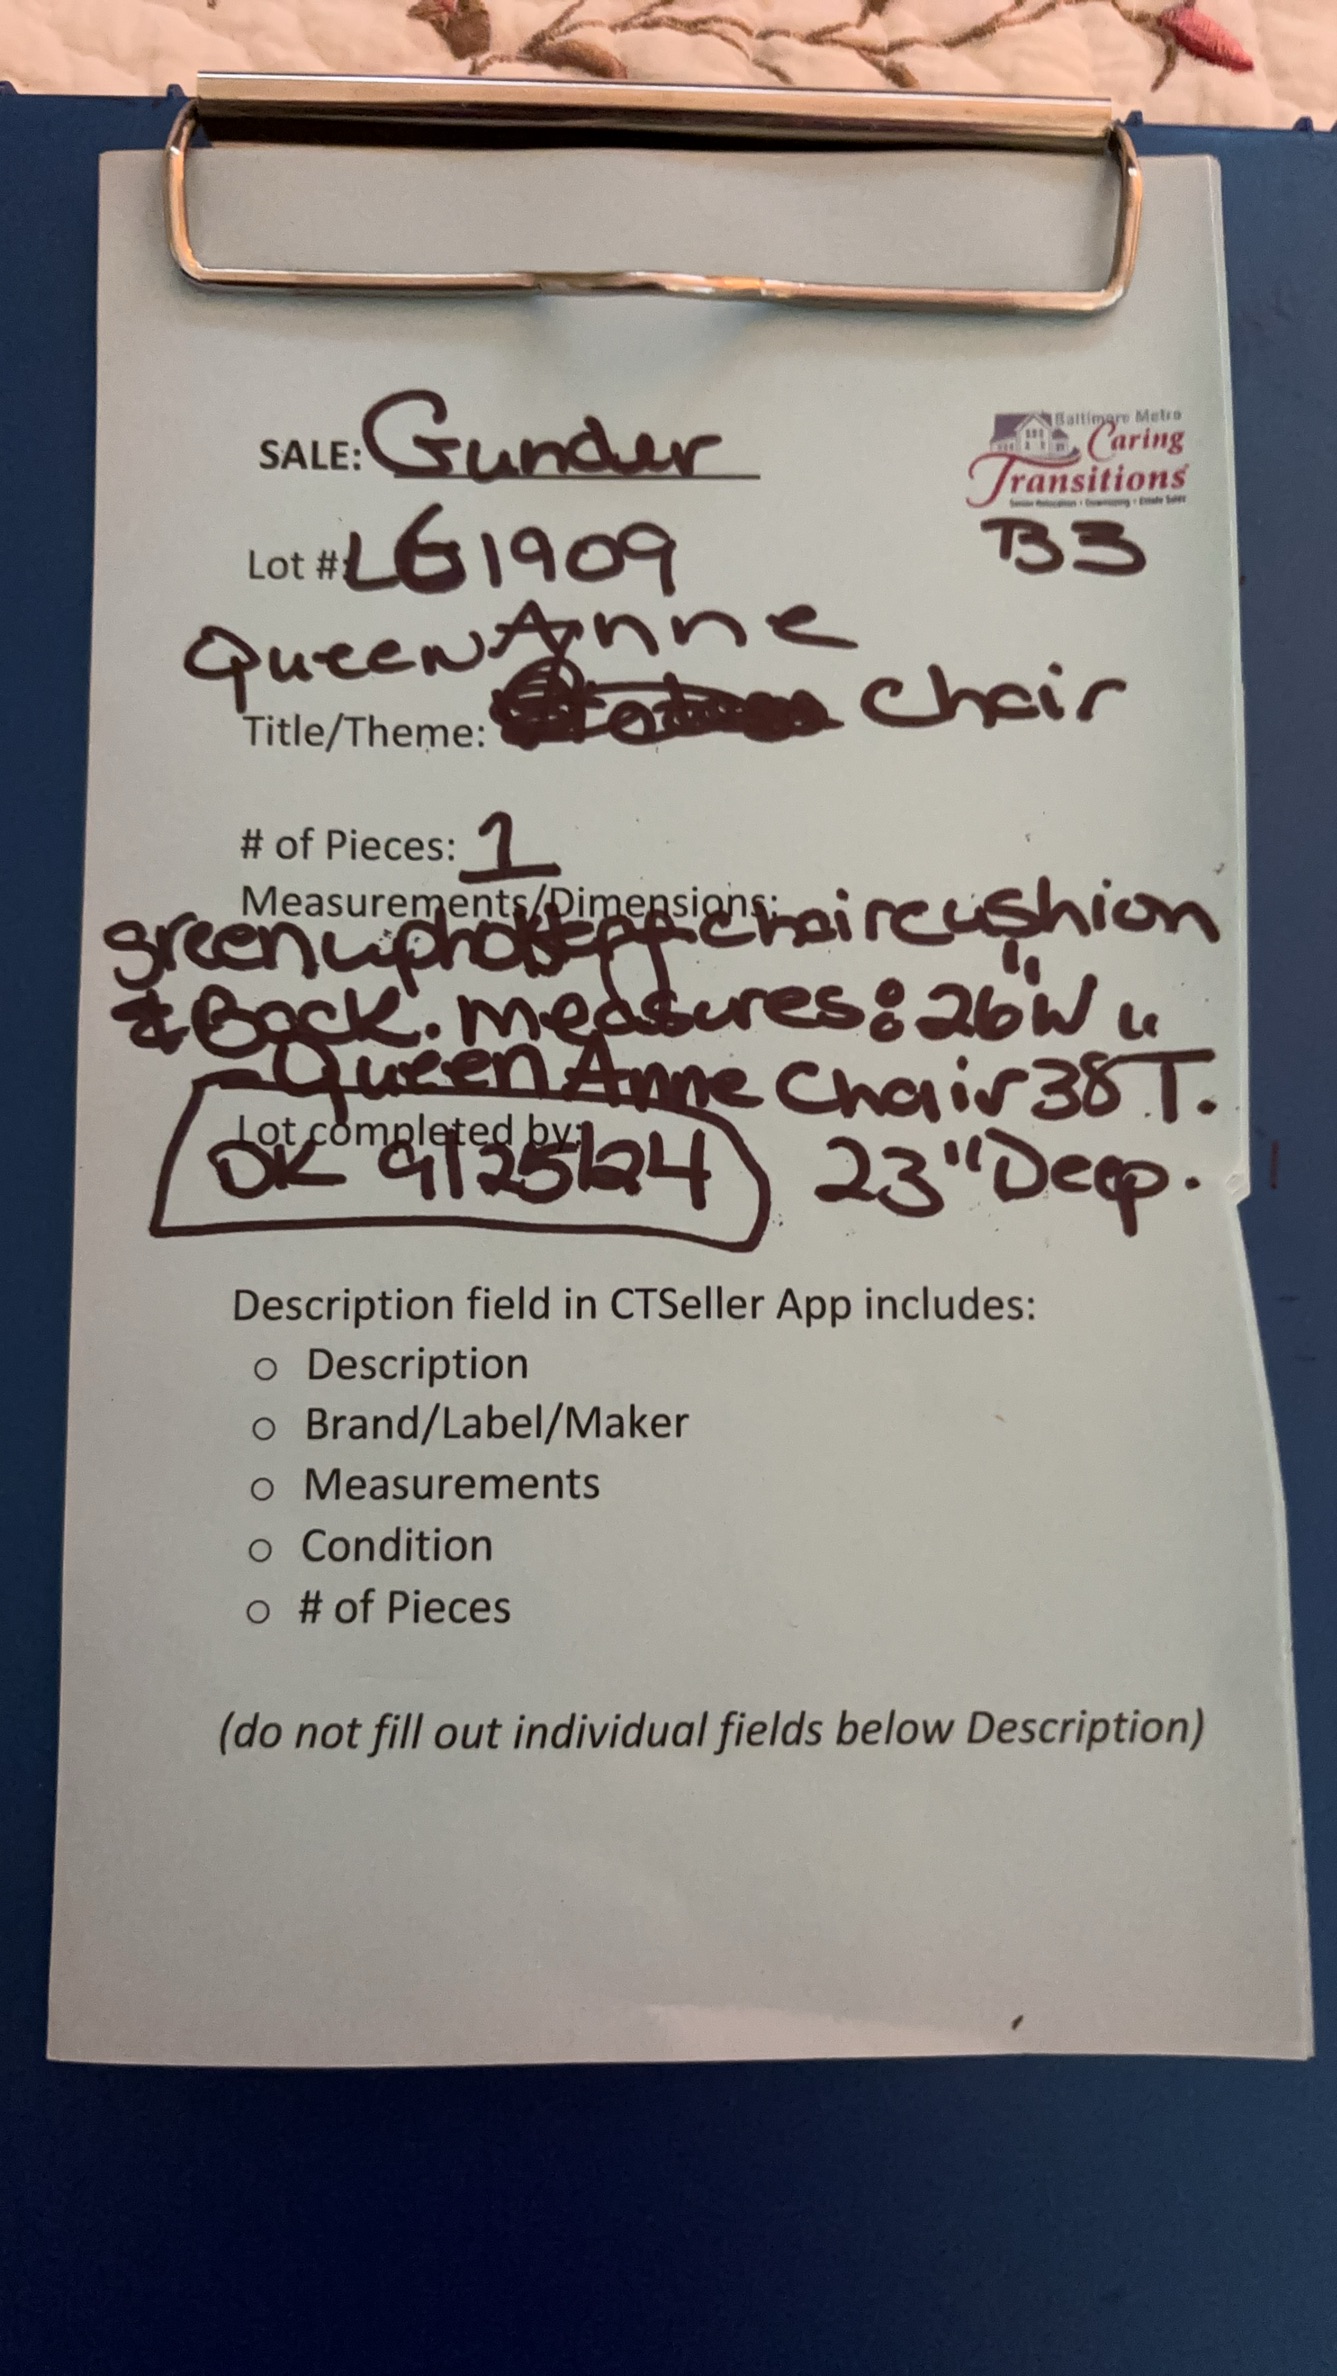 Baltimore Metro
Caring
Transitions
Senior Relocation • Downsizing • Estate Sales
SALE: Gunder
Lot #: LG1909 B3
Queen Anne
Title/Theme: Chair
# of Pieces: 1
Measurements/Dimensions:
green chair cushion
& Back. measures: 26"W
Queen Anne Chair 38"T.
Lot completed by:
DK 9/25/24 23" Deep.
Description field in CTSeller App includes:
o Description
o Brand/Label/Maker
o Measurements
o Condition
o # of Pieces
(do not fill out individual fields below Description)